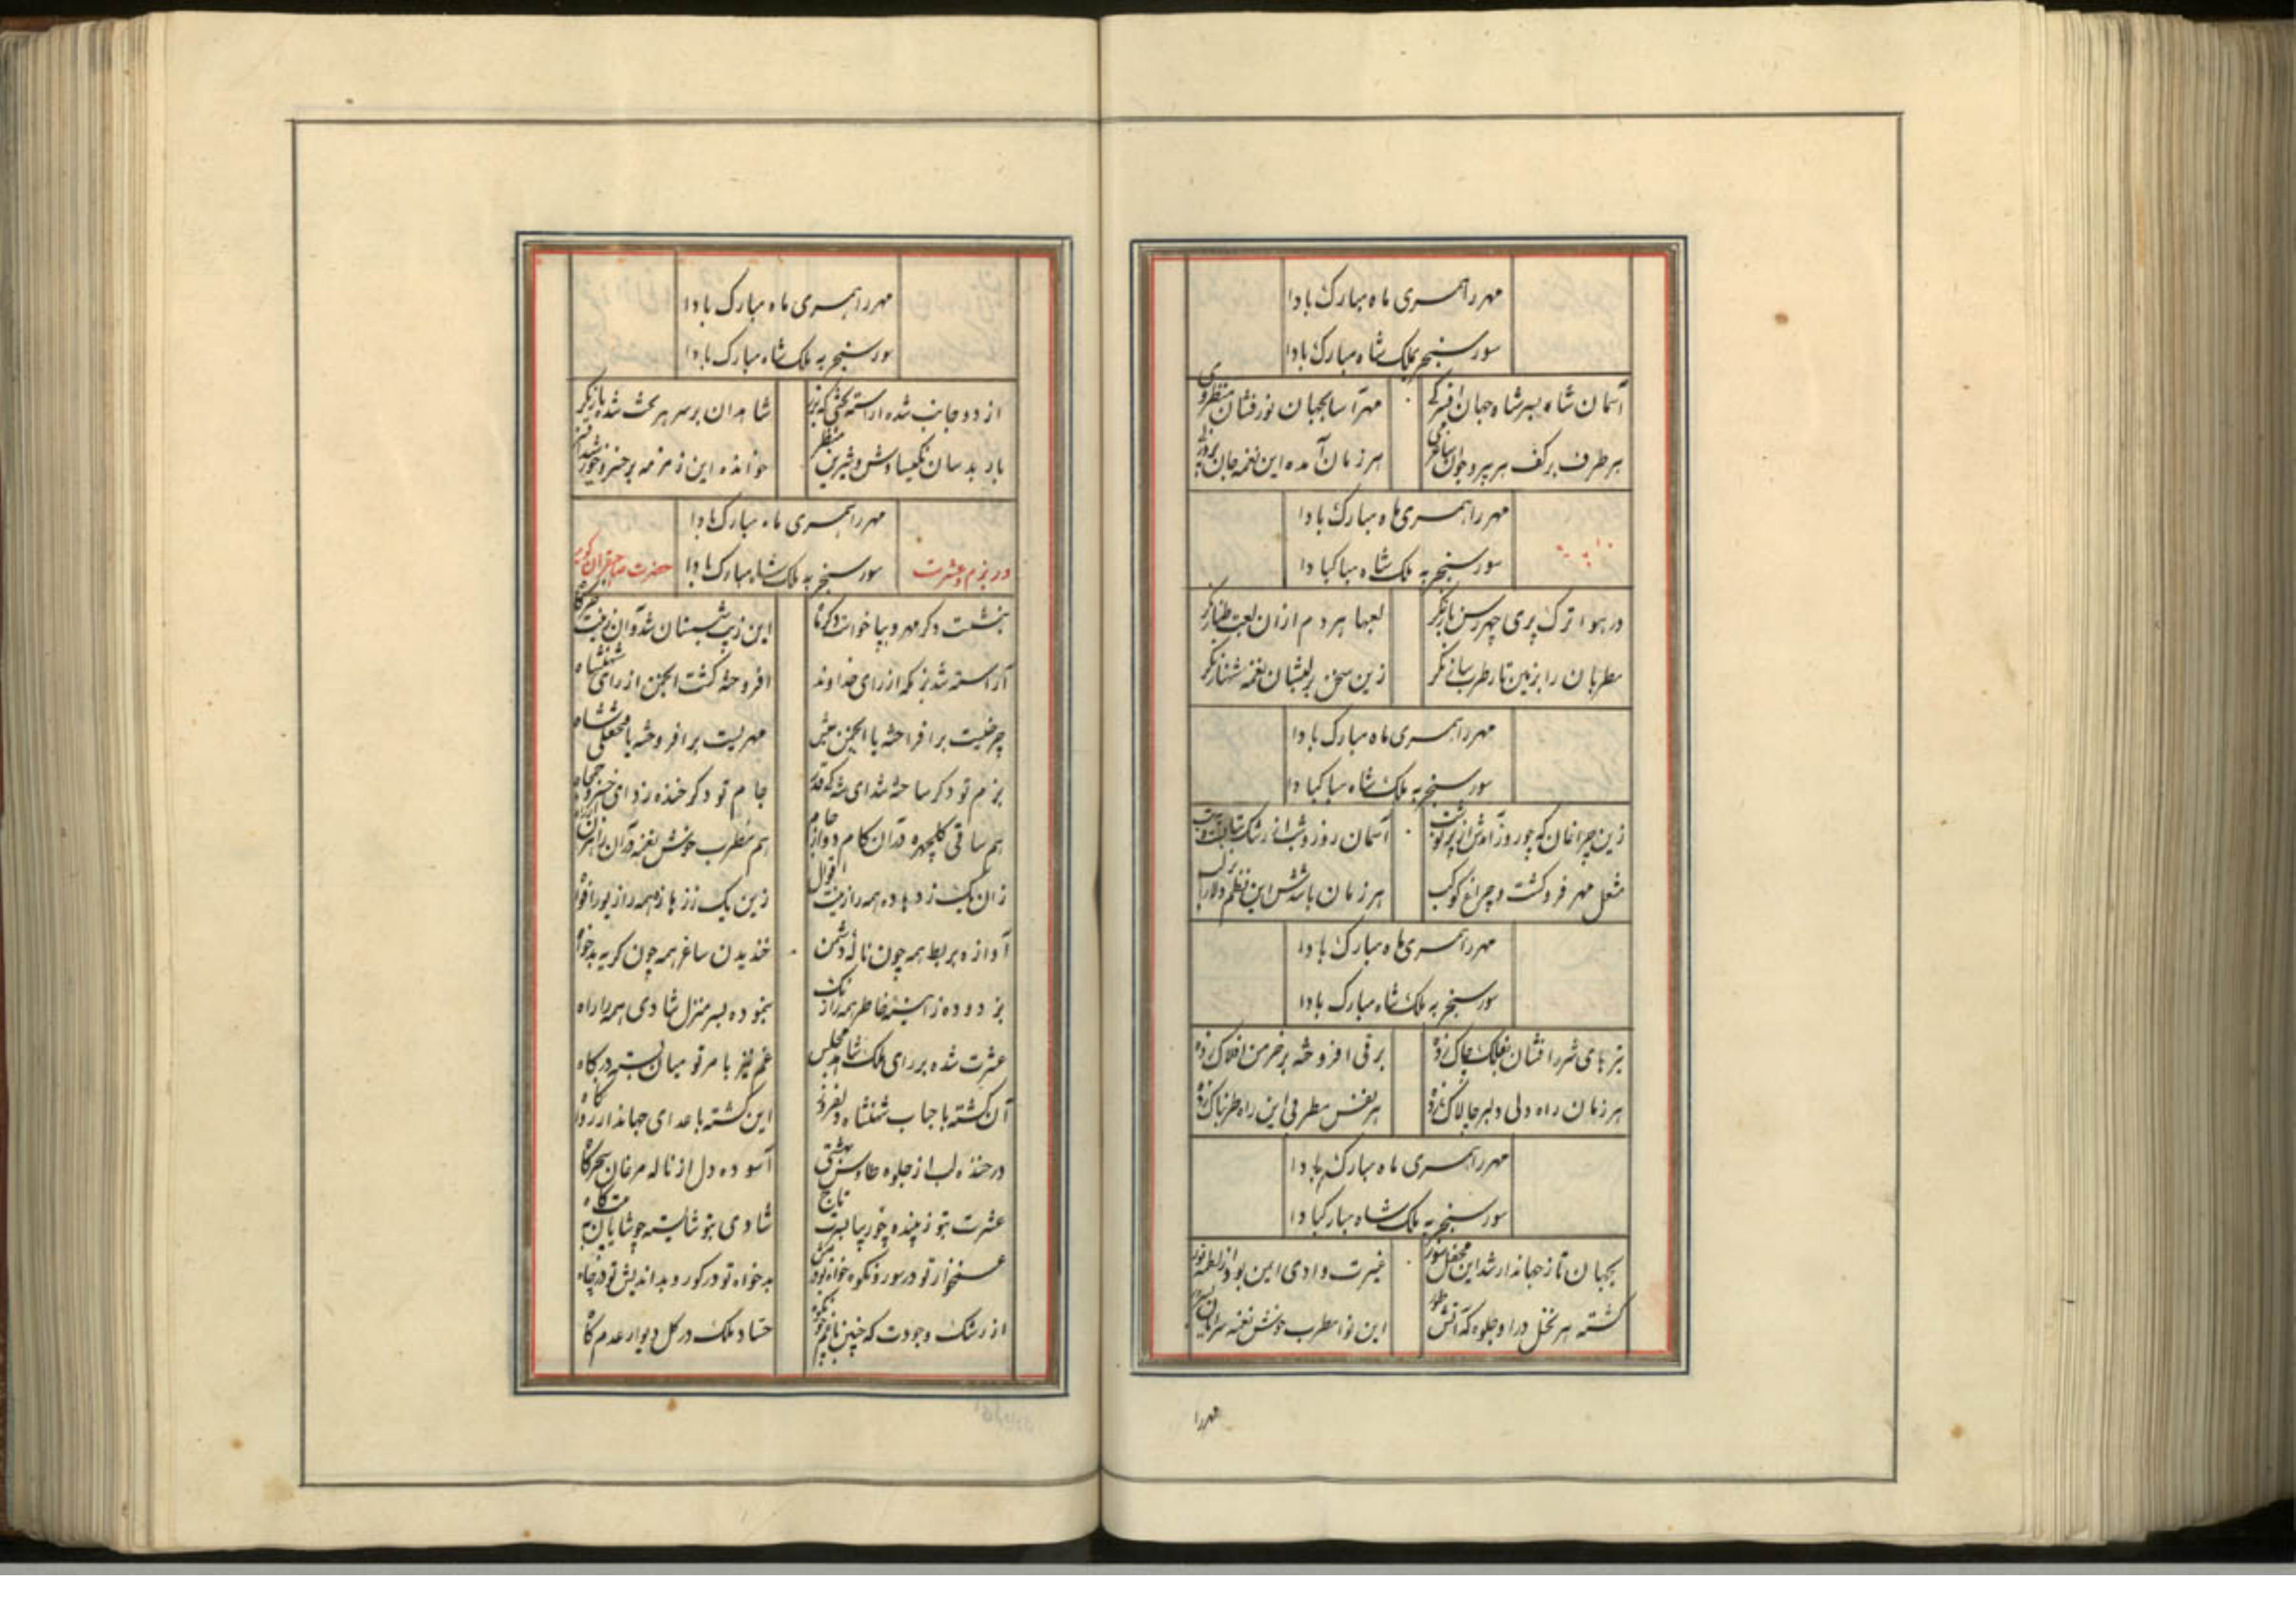 مهر را همسری ماه مبارک بادا
سور سنجر بملک شاه مبارک بادا
آسمان شاه بسر شاه جهان افسر کی مهر آسا بجهان نور فشان منظر وی
هر طرف بر کف هر پیر و جوان ساغر می هر زمان آمده این نغمه جان پرور
مهر را همسری ماه مبارک بادا
سور سنجر به ملک شاه مبارکبادا
در هوا ترک پری چهر رسن باز نگر لعبها هر دم از ان لعبت طناز نگر
مطربان را بزمین تار طرب ساز نگر زین سخن بر لبشان نغمه شهناز نگر
مهر را همسری ماه مبارک بادا
سور سنجر به ملک شاه مبارکبادا
زین چراغان که چو روز آمدش از پرتو شب آسمان روز و شب از رشک
مشعل مهر فرو کشت و چراغ کوکب هر زمان باشدش این نظم دلارا بر لب
مهر را همسری ماه مبارک بادا
سور سنجر به ملک شاه مبارک بادا
تیرهای شرر افشان بفلک چاک زده برقی افروخته بر خرمن افلاک زده
هر زمان راه دلی دلبر چالاک زده هر نفس مطربی این راه طربناک زده
مهر را همسری ماه مبارک بادا
سور سنجر به ملک شاه مبارکبادا
بجهان تا ز جهاندار شد این محفل سور غیرت وادی ایمن بود از لطمه نور
گشته هر نخل در او جلوه که آتش طور این نوا مطرب خوش نغمه سراید
مهر را
مهر را همسری ماه مبارک بادا
سور سنجر به ملک شاه مبارک بادا
از دو جانب شده آراسته تختی که بزر شاهدان بر سر هر تخت شده بازیگر
باربد سان نکیسا وش و شیرین منظر خوانده این زمزمه بر خسرو خورشید افسر
مهر را همسری ماه مبارک بادا
در بزم و عشرت سور سنجر به ملک شاه مبارک بادا حضرت صاحبقران گوید
بنشست دگر مهر و بپا خواست دگر ماه این زیب شبستان شد و آن زینت خرگاه
آراسته شد بزمکه از رای خداوند افروخته گشت انجمن از رای شهنشاه
چرخیست بر افراخته یا انجمن عیش مهریست بر افروخته یا محفلی شاه
بزم تو دگر ساخته شد ای شه جام تو دگر خنده زد ای خسرو جمجاه
هم ساقی گلچهره در آن هم مطرب خوش نغمه در آن
زان یک زده همه را زین یک زده همه را
آوازه بربط همه چون ناله دشمن خندیدن ساغر همه چون گریه بدخواه
بزدوده ز آیینه خاطر همه را زنگ بنموده بسر منزل شادی همه را راه
عشرت شده بر رای ملک شاه مجلس غم نیز با مر تو میان بسته
آن گشته با حباب شهنشاه این گشته با عدای جهاندار
در خنده لب از جلوه طاوس بهشتی آسوده دل از ناله مرغان سحرگاه
عشرت بتو زیبنده چو بر تاج شادی بتو شایسته چو شایان
از تو در سور و نکوخواه بدخواه تو در گور و بداندیش تو در چاه
از رشک وجودت که چنین حساد ملک در گل دیوار عدم کاه